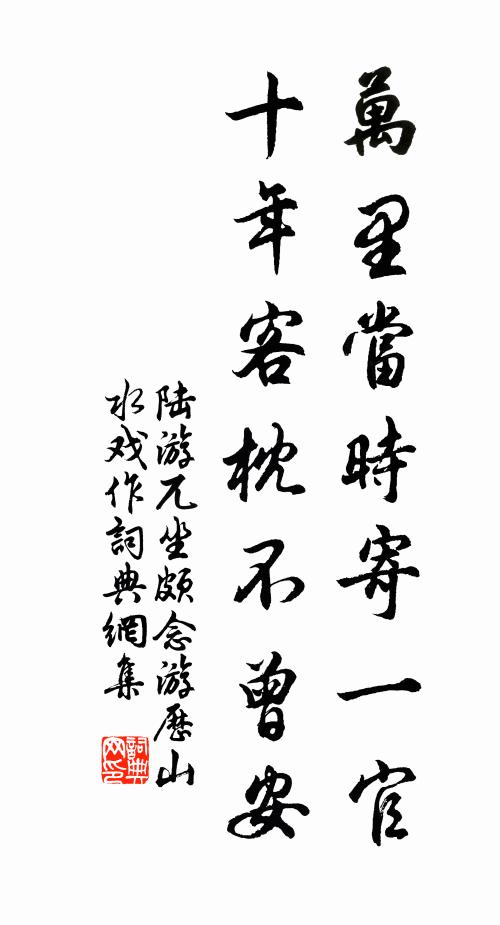 萬里當時寄一官
十年客枕不曾安
陆游兀坐頗念游歷山
水戏作詞典網集
詞典網印